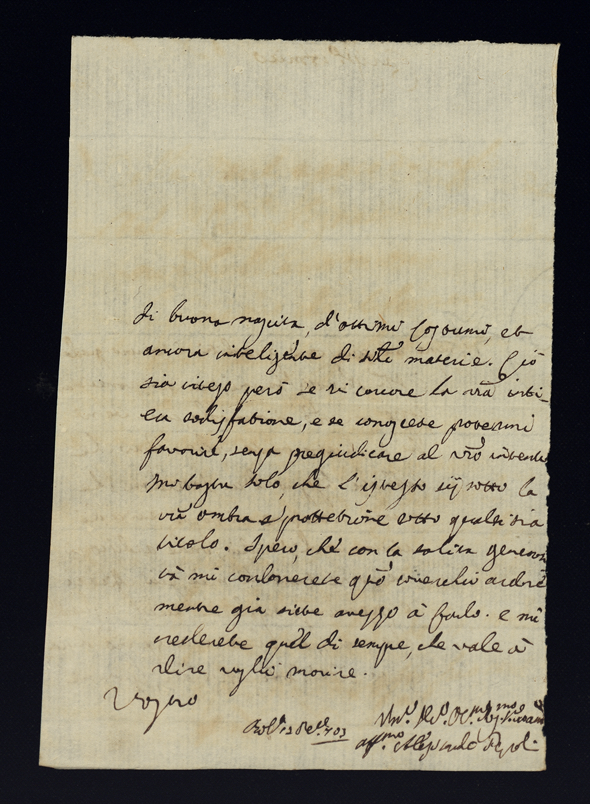 di buona nascita, d'ottimi costumi, et
ancora inteligente di tale materie. Ciò
sia inteso però se vi concore la vrã inti-
era sodisfatione, e se conoscete potermi
favorire, senza pregiudicare al vrõ
mi basta solo, che l'istesso sij sotto la
vrã ombra e prottetione sotto qualsisia
titolo. Spero, che con la solita generosi
tà mi condonerete qsto ardire
mentre già siete avezzo à farlo. e mi
crederete quel di sempre, che vale à
dire voglio morire.
Bolã 13 703
aff.mo Alessandro